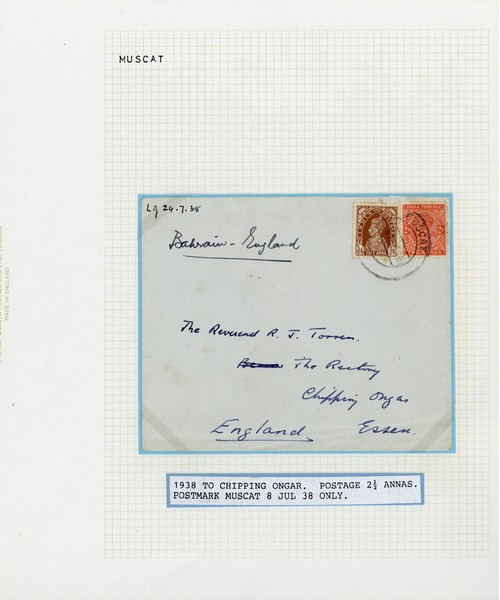 MUSCAT
Lg 24.7.38
Bahrain - England
MUSCAT
The Reverend R. J. Torrens.
The Rectory
Chipping Ongar
England Essex.
1938 TO CHIPPING ONGAR. POSTAGE 2½ ANNAS.
POSTMARK MUSCAT 8 JUL 38 ONLY.
MADE IN ENGLAND